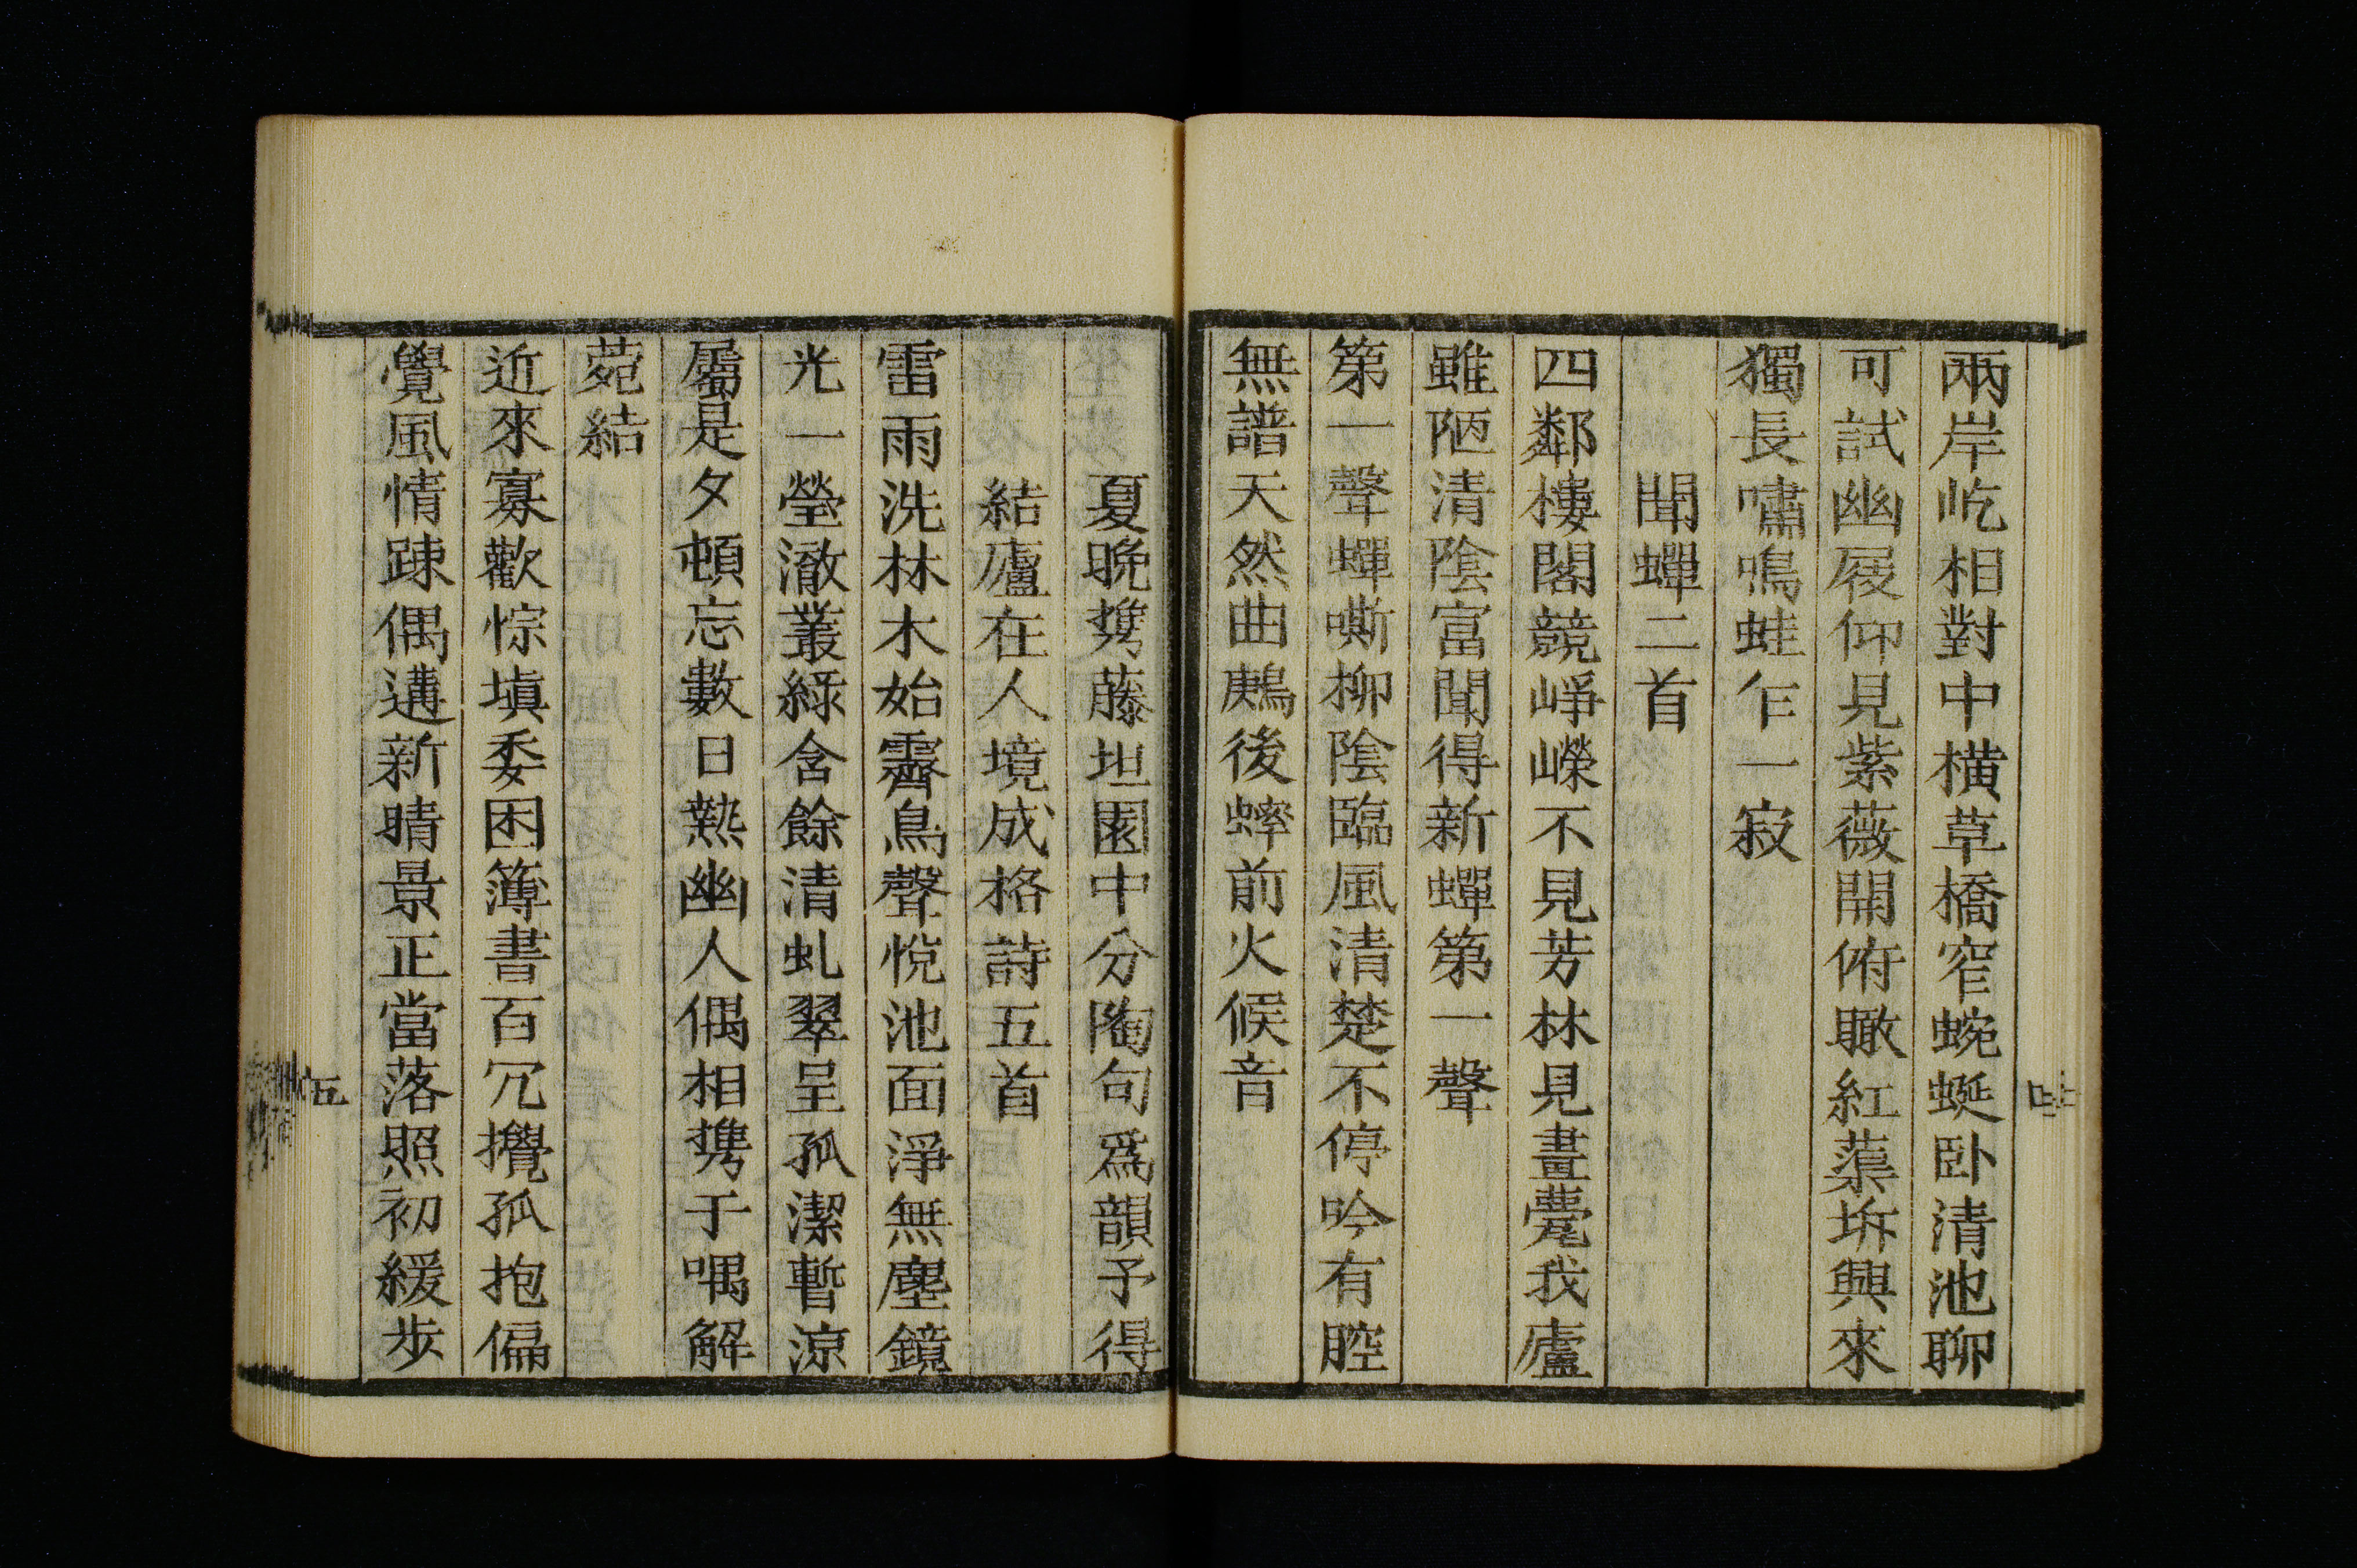 兩岸屹相對中橫草橋窄蜿蜒卧清池聊
可試幽屐仰見紫薇開俯瞰紅蕖坼興來
獨長嘯鳴蛙乍一寂
聞蟬二首
四鄰樓閣競崢嶸不見芳林見畫甍我廬
雖陋清陰富聞得新蟬第一聲
第一聲蟬嘶柳陰臨風清楚不停吟有腔
無譜天然曲鵊後蟀前火候音
夏晩携藤坦園中分陶句爲韻予得
結廬在人境成格詩五首
雷雨洗林木始霽鳥聲悅池面淨無塵鏡
光一瑩澈叢綠含餘清虬翠呈孤潔暫涼
屬是夕頓忘數日熱幽人偶相携于喁解
菀結
近來寡歡悰塡委困簿書百冗攪孤抱偏
覺風情踈偶遘新晴景正當落照初緩步
五